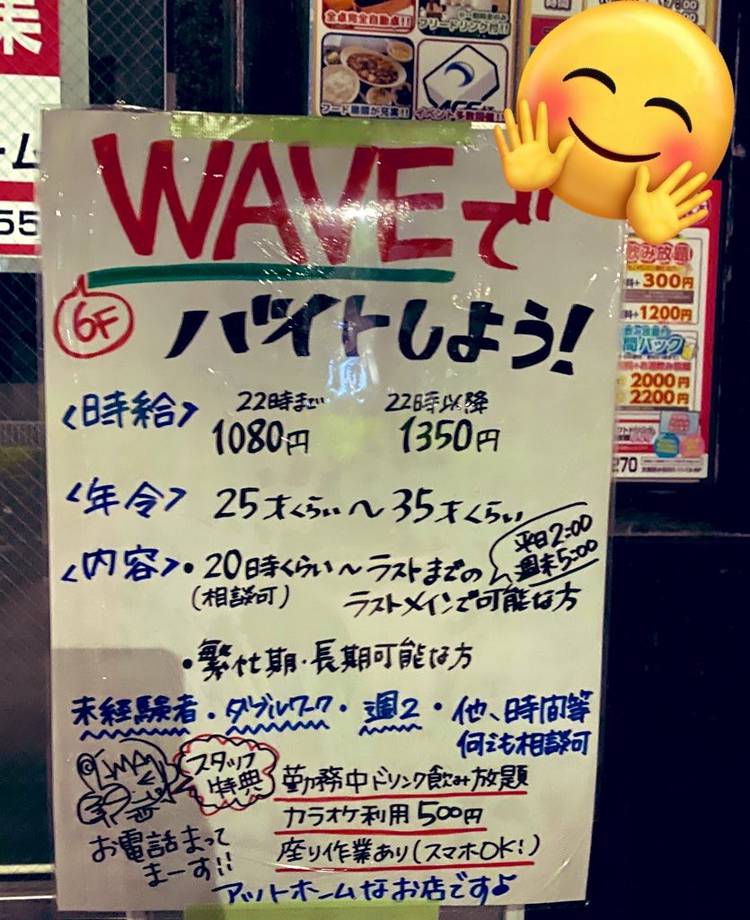 全卓完全自動卓!!
フリードリンク付!!
フード種類が充実!!
イベント多数開催!!
WAVEで
6F
バイトしよう!
<時給>
22時まで
1080円
22時以降
1350円
<年令> 25才くらい〜35才くらい
<内容>・20時くらい〜ラストまでの
平日2:00
週末5:00
(相談可)
ラストメインで可能な方
・繁忙期・長期可能な方
未経験者・ダブルワーク・週2・他、時間等
何でも相談可
スタッフ
特典
勤務中ドリンク飲み放題
カラオケ利用500円
座り作業あり(スマホOK!)
お電話まって
まーす!!
アットホームなお店ですよ
飲み放題
300円
1200円
間パック
2000円
2200円
55
270